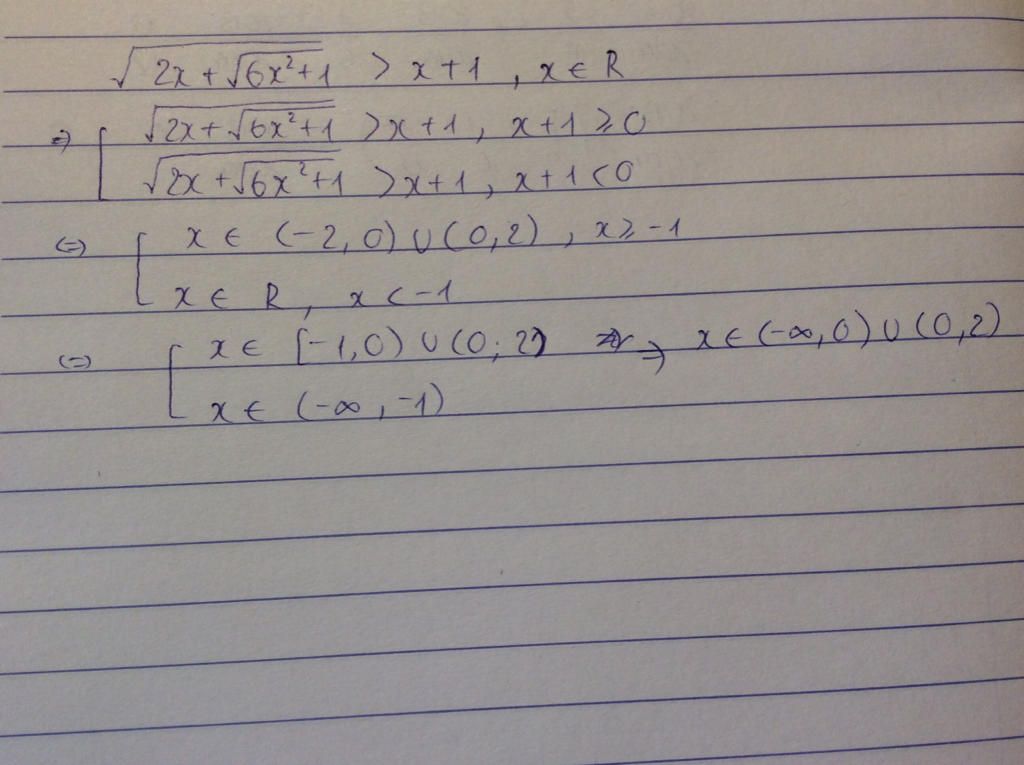 √(2x + √(6x²+1)) > x+1 , x ∈ R
=) [ √(2x+√(6x²+1)) > x+1 , x+1 ⩾ 0
√(2x+√(6x²+1)) > x+1 , x+1 < 0
(=) [ x ∈ (-2, 0) ∪ (0, 2) , x ⩾ -1
x ∈ R , x < -1
(=) [ x ∈ [-1, 0) ∪ (0; 2) => x ∈ (-∞, 0) ∪ (0, 2)
x ∈ (-∞, -1)